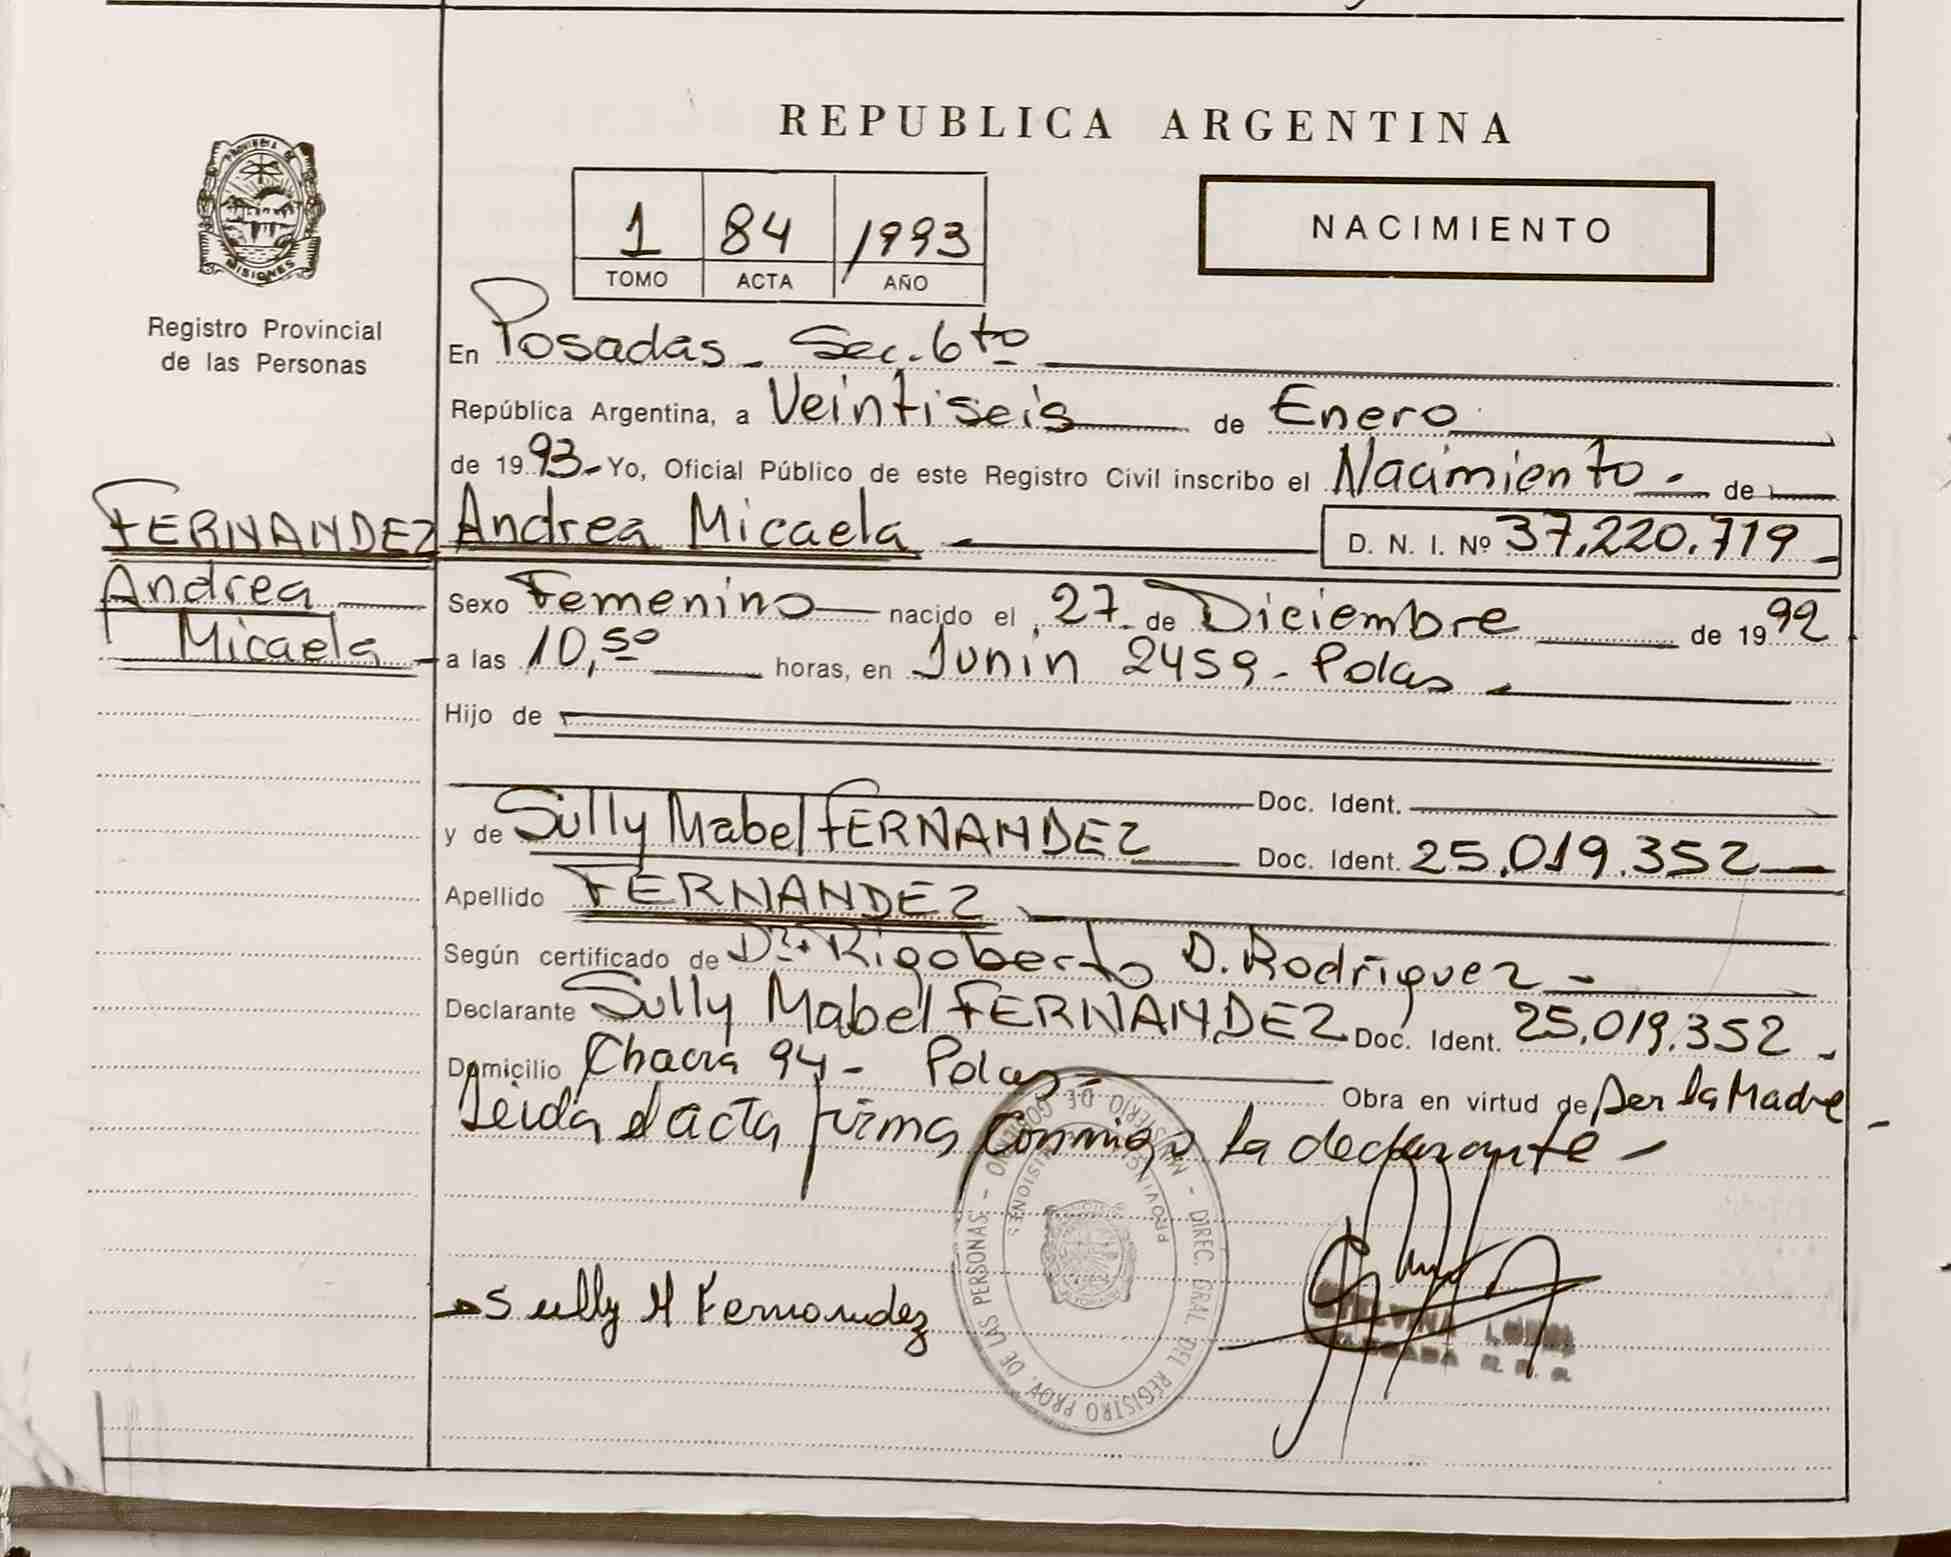 REPUBLICA ARGENTINA
PROVINCIA DE
MISIONES
Registro Provincial
de las Personas
1 84 1993
TOMO ACTA AÑO
NACIMIENTO
En Posadas - Sec. 6to
República Argentina, a Veintiseis de Enero
de 1993 - Yo, Oficial Público de este Registro Civil inscribo el Nacimiento - de
FERNANDEZ
Andrea
Micaela
Andrea Micaela - D. N. I. Nº 37.220.719 -
Sexo Femenino nacido el 27 de Diciembre de 1992
a las 10,50 horas, en Junin 2459 - Pdas -
Hijo de
Doc. Ident.
y de Sully Mabel FERNANDEZ Doc. Ident. 25.019.352
Apellido FERNANDEZ
Según certificado de Dr. Rigoberto D. Rodriguez -
Declarante Sully Mabel FERNANDEZ Doc. Ident. 25.019.352 -
Domicilio Chacra 94 - Pdas -
Obra en virtud de ser la Madre -
Leida el acta firma conmigo la declarante -
MINISTERIO DE GOBIERNO - DIREC. GRAL. DEL REGISTRO PROV. DE LAS PERSONAS -
PROVINCIA MISIONES
Sully M Fernandez